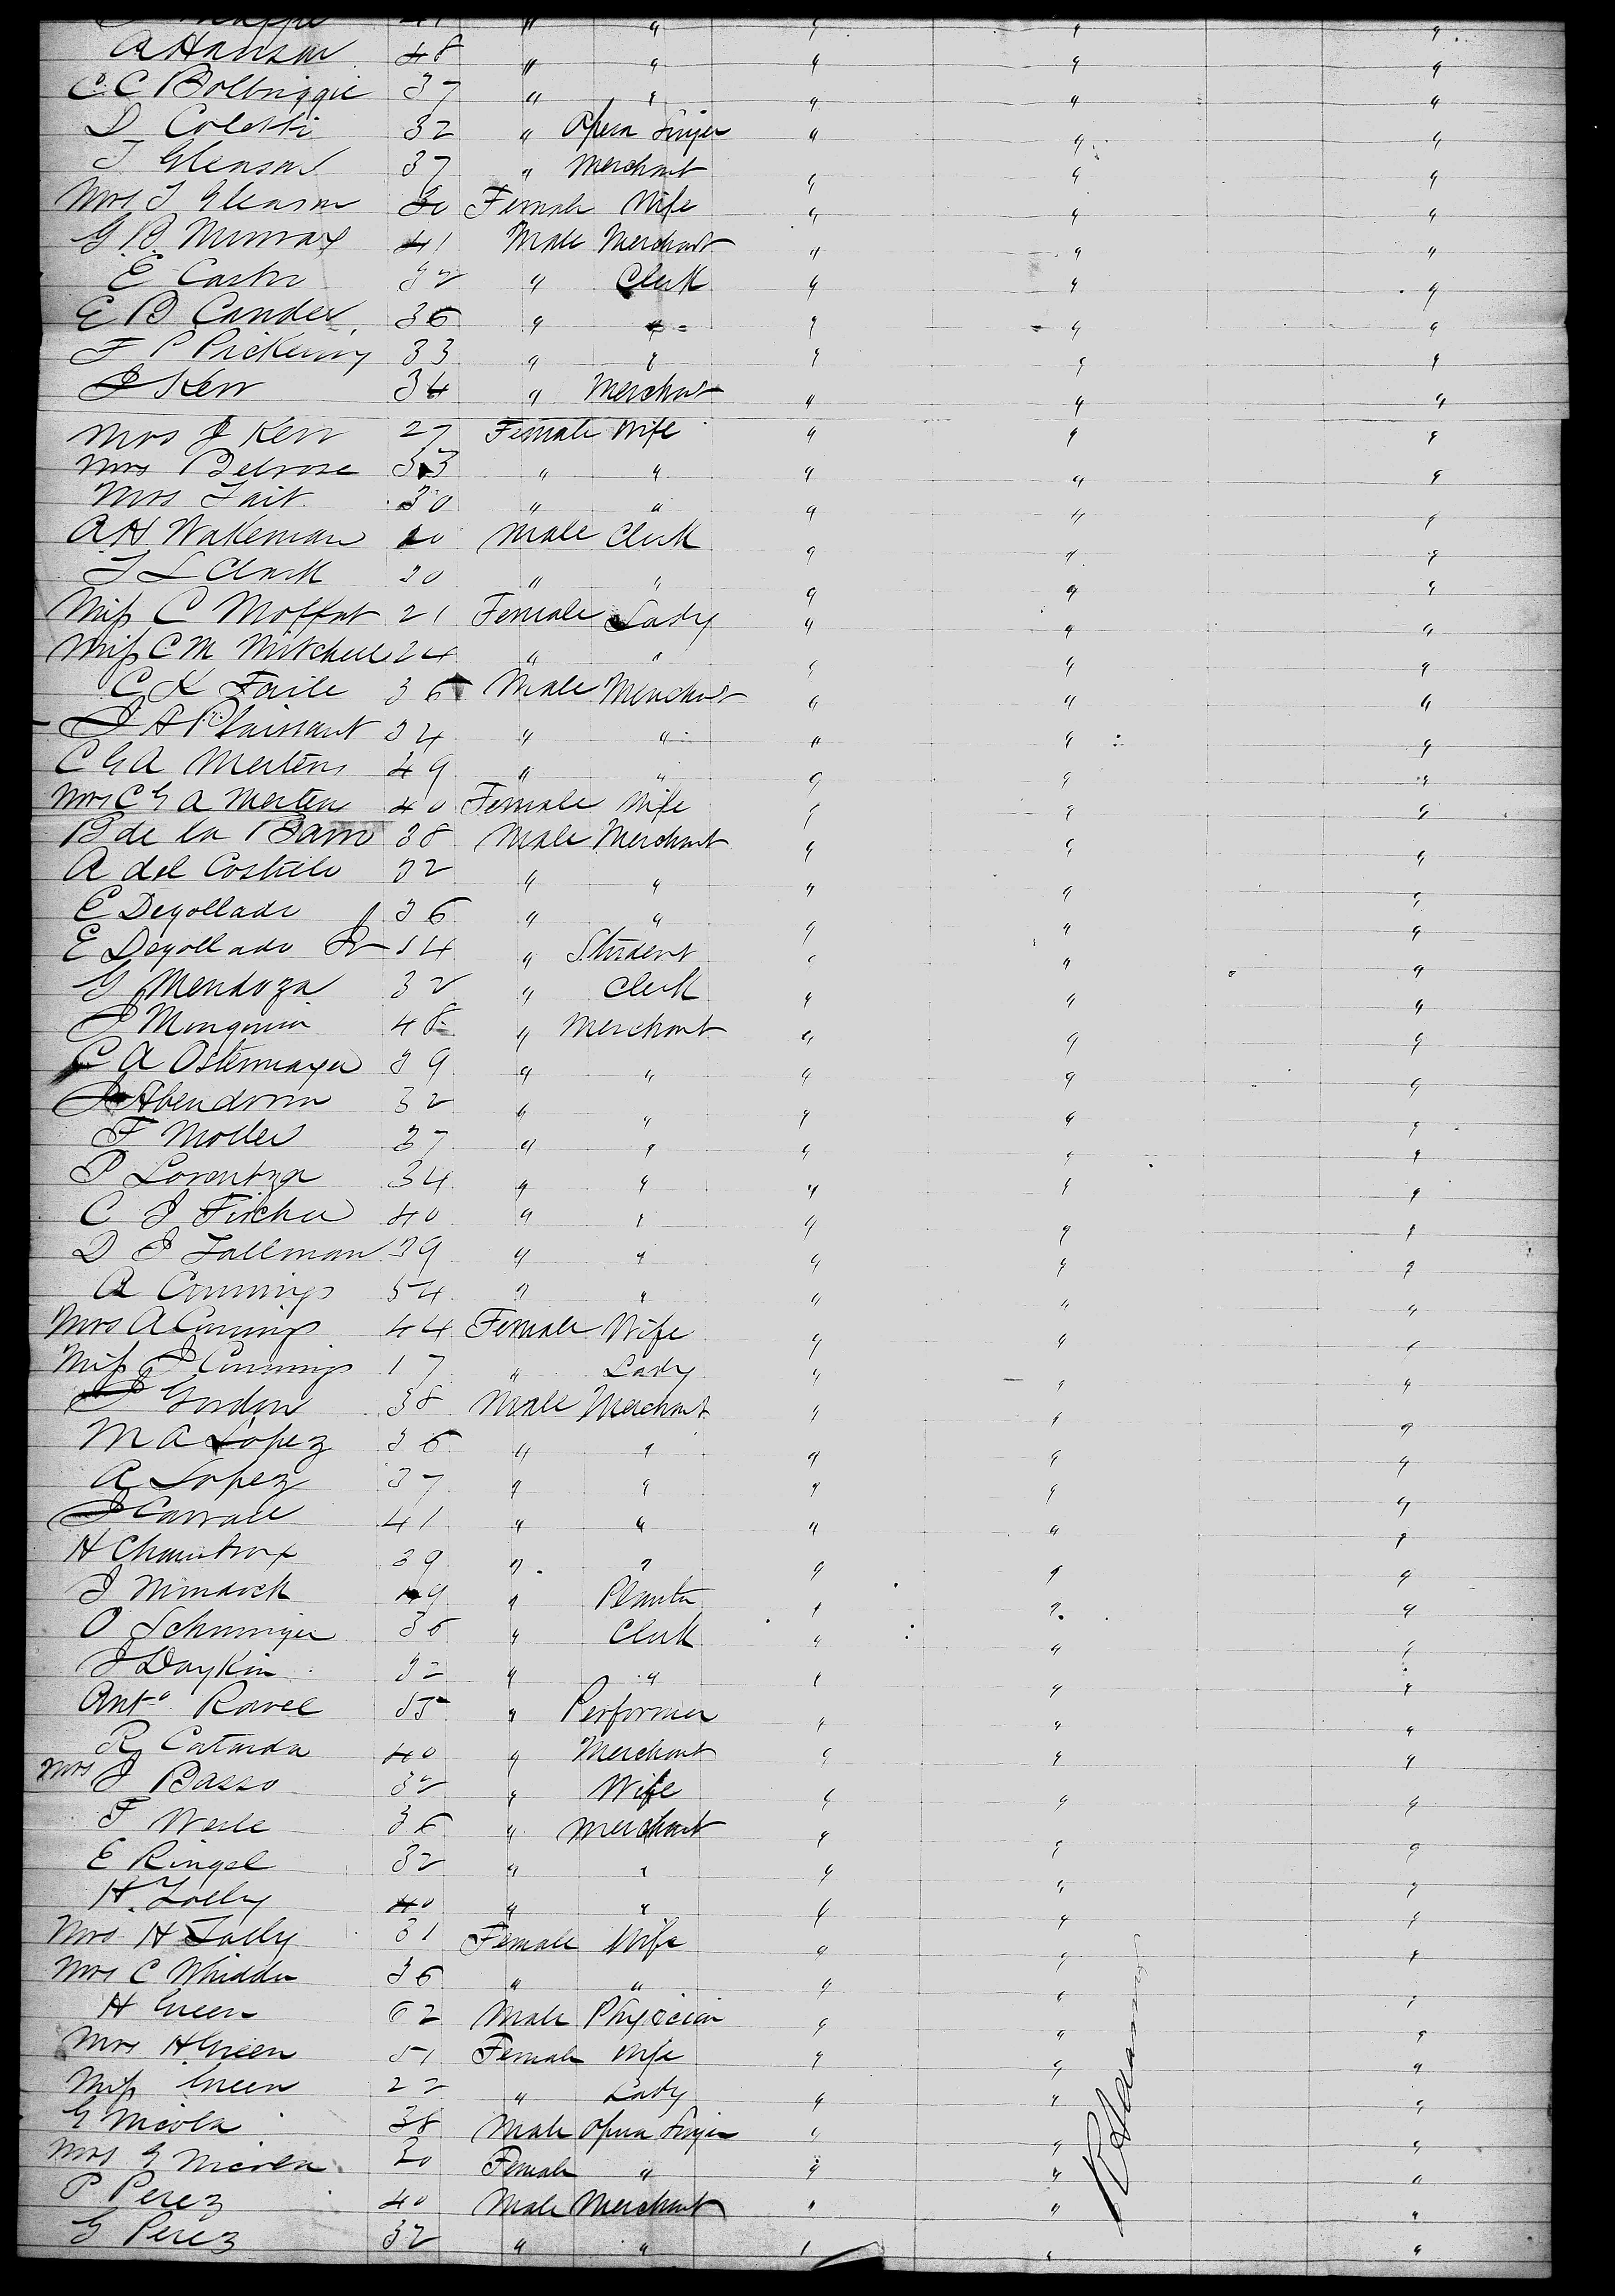 A Hanson 48 " " " " "
C. C Bolbriggie 37 " " " " "
D Coletti 32 " Opera Singer " " "
T Gleason 37 " Merchant " " "
Mrs T Gleason 30 Female Wife " " "
G. B. Murray 41 Male Merchant " " "
E Castro 32 " Clerk " " "
E B Candee 36 " " " " "
F P Pickering 33 " " " " "
J Kerr 34 " Merchant " " "
Mrs J Kerr 27 Female Wife " " "
Mrs Belrose 33 " " " " "
Mrs Tait 30 " " " " "
A H Wakeman 20 Male Clerk " " "
T L Clark 30 " " " " "
Miss C Moffat 21 Female Lady " " "
Miss C M Mitchell 24 " " " " "
C K Faile 36 Male Merchant " " "
J A Plaissant 34 " " " " "
C G A Mertens 49 " " " " "
Mrs C G A Merten 40 Female Wife " " "
B de la Barro 38 Male Merchant " " "
A del Costielo 32 " " " " "
E Degollado 36 " " " " "
E Degollado Jr 14 " Student " " "
G Mendoza 32 " Clerk " " "
J Monguin 48 " Merchant " " "
C A Ostermayer 39 " " " " "
J Abendroon 32 " " " " "
F Moller 37 " " " " "
P Lorentzen 34 " " " " "
C J Fircher 40 " " " " "
D J Tallman 39 " " " " "
A Cummings 54 " " " " "
Mrs A Cummings 44 Female Wife " " "
Miss J Cummings 17 " Lady " " "
J Gordon 38 Male Merchant " " "
M A Lopez 36 " " " " "
A Lopez 37 " " " " "
J Carrale 41 " " " " "
H Chauntrox 39 " " " " "
J Mimdock 49 " Planter " " "
O Schuringer 36 " Clerk " " "
J Daykin 32 " " " " "
Anto Ravel 55 " Performer " " "
R Catarda 40 " Merchant " " "
Mrs J Basso 32 " Wife " " "
F Werle 36 " Merchant " " "
E Ringel 32 " " " " "
H. Tolly 40 " " " " "
Mrs H Tolly 31 Female Wife " " "
Mrs C Whidden 36 " " " " "
H Green 62 Male Physician " " "
Mrs H Green 51 Female Wife " " "
Miss Green 22 " Lady " " "
G Nicola 38 Male Opera Singer " " "
Mrs G Nicola 30 Female " " " "
P Perez 40 Male Merchant " " "
G Perez 32 " " " " "